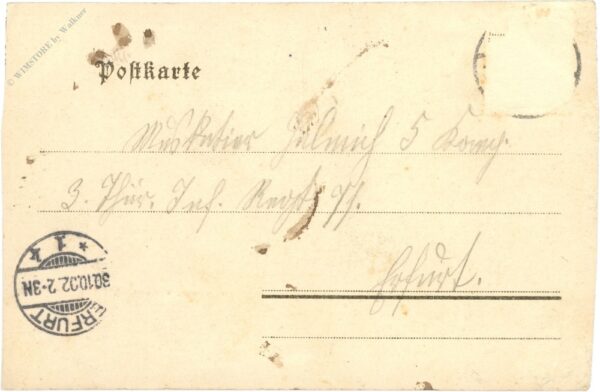 © WIMSTORE by Walkner
Postkarte
Musketier 5 Komp.
3. Thür. Inf. Regt. 71.
Erfurt.
* 1 k
30.10.02.2-3N
ERFURT